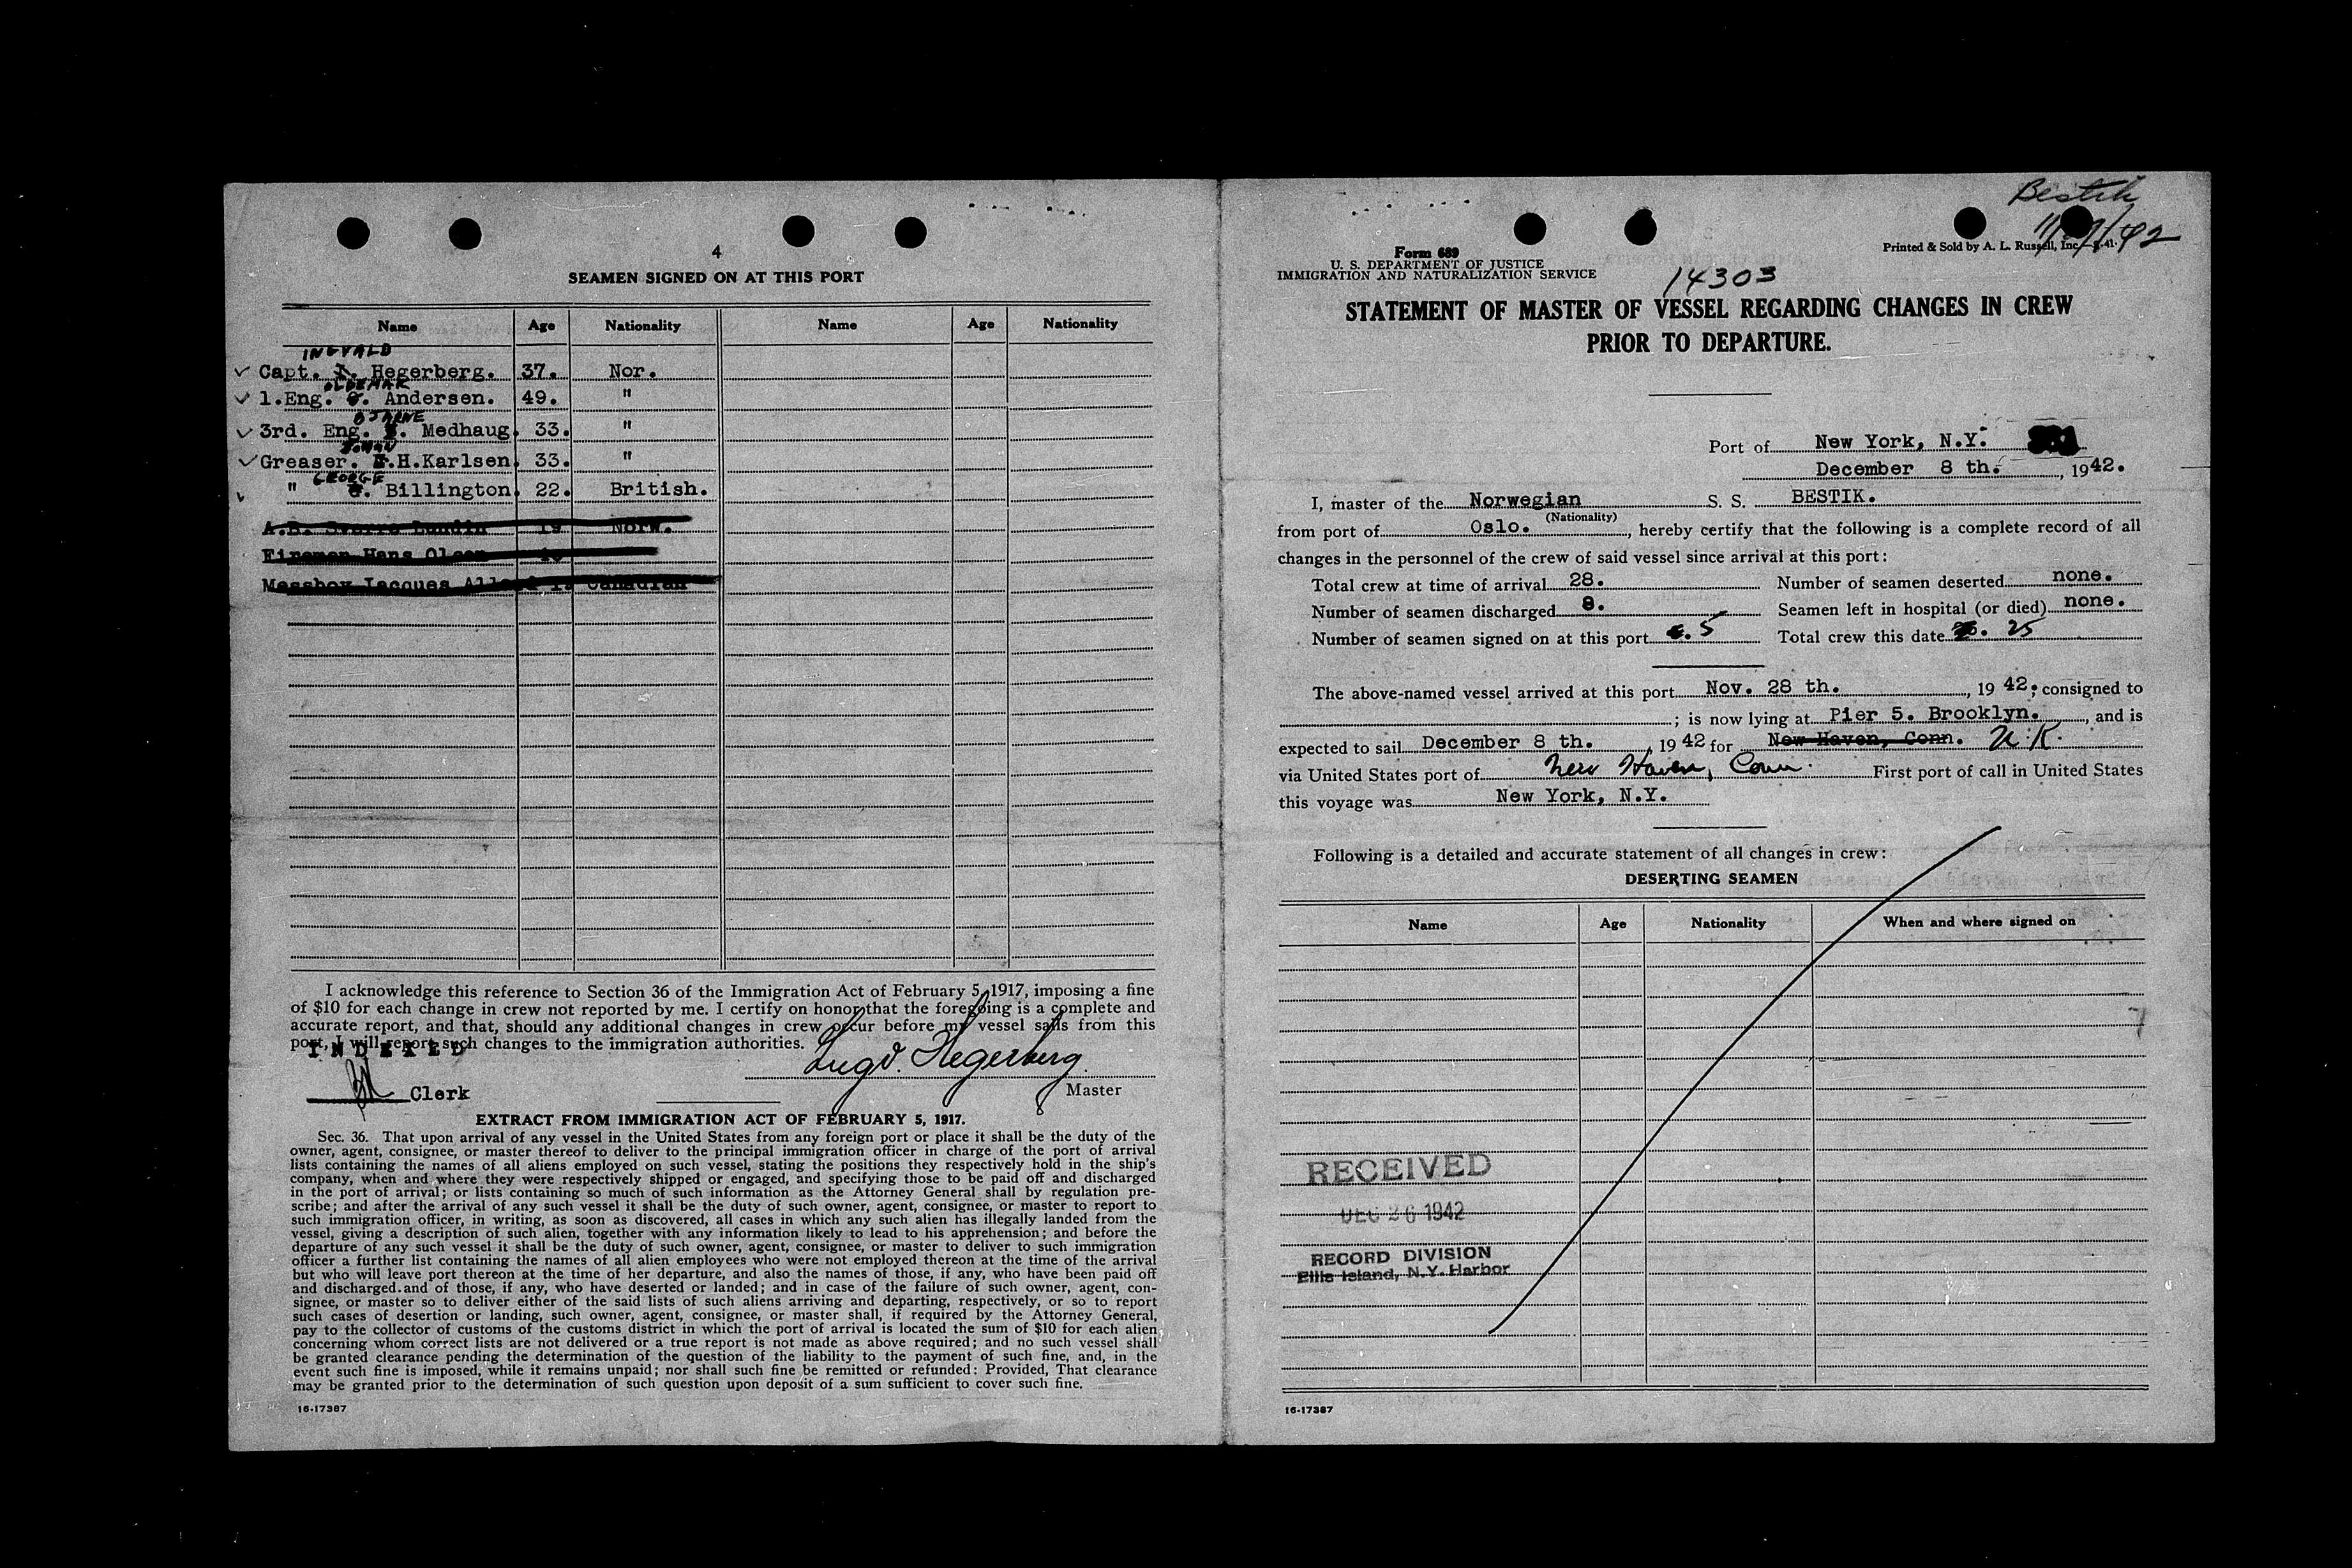 4
SEAMEN SIGNED ON AT THIS PORT
Name Age Nationality Name Age Nationality
INGVALD
Capt. I. Hegerberg. 37. Nor.
OLDEMAR
1.Eng. Andersen. 49. "
BJARNE
3rd. Eng. Medhaug. 33. "
JOHAN
Greaser. H.Karlsen. 33. "
GEORGE
" G. Billington. 22. British.
A.B. Sverre Lundin 19 Norw.
Fireman Hans Olsen
Messboy Jacques Canadian
I acknowledge this reference to Section 36 of the Immigration Act of February 5, 1917, imposing a fine
of $10 for each change in crew not reported by me. I certify on honor that the foregoing is a complete and
accurate report, and that, should any additional changes in crew occur before my vessel sails from this
port, I will report such changes to the immigration authorities.
INDEXED
Ingv. Hegerberg.
Clerk
Master
EXTRACT FROM IMMIGRATION ACT OF FEBRUARY 5, 1917.
Sec. 36. That upon arrival of any vessel in the United States from any foreign port or place it shall be the duty of the
owner, agent, consignee, or master thereof to deliver to the principal immigration officer in charge of the port of arrival
lists containing the names of all aliens employed on such vessel, stating the positions they respectively hold in the ship's
company, when and where they were respectively shipped or engaged, and specifying those to be paid off and discharged
in the port of arrival; or lists containing so much of such information as the Attorney General shall by regulation pre-
scribe; and after the arrival of any such vessel it shall be the duty of such owner, agent, consignee, or master to report to
such immigration officer, in writing, as soon as discovered, all cases in which any such alien has illegally landed from the
vessel, giving a description of such alien, together with any information likely to lead to his apprehension; and before the
departure of any such vessel it shall be the duty of such owner, agent, consignee, or master to deliver to such immigration
officer a further list containing the names of all alien employees who were not employed thereon at the time of the arrival
but who will leave port thereon at the time of her departure, and also the names of those, if any, who have been paid off
and discharged.and of those, if any, who have deserted or landed; and in case of the failure of such owner, agent, con-
signee, or master so to deliver either of the said lists of such aliens arriving and departing, respectively, or so to report
such cases of desertion or landing, such owner, agent, consignee, or master shall, if required by the Attorney General,
pay to the collector of customs of the customs district in which the port of arrival is located the sum of $10 for each alien
concerning whom correct lists are not delivered or a true report is not made as above required; and no such vessel shall
be granted clearance pending the determination of the question of the liability to the payment of such fine, and, in the
event such fine is imposed, while it remains unpaid; nor shall such fine be remitted or refunded: Provided, That clearance
may be granted prior to the determination of such question upon deposit of a sum sufficient to cover such fine.
16-17387
Bestik
Form 689
U. S. DEPARTMENT OF JUSTICE
IMMIGRATION AND NATURALIZATION SERVICE
Printed & Sold by A. L. Russell, Inc.
14303
STATEMENT OF MASTER OF VESSEL REGARDING CHANGES IN CREW
PRIOR TO DEPARTURE.
Port of New York, N.Y.
December 8 th. , 1942.
I, master of the Norwegian S. S. BESTIK.
(Nationality)
from port of Oslo. , hereby certify that the following is a complete record of all
changes in the personnel of the crew of said vessel since arrival at this port:
Total crew at time of arrival 28. Number of seamen deserted none.
Number of seamen discharged 8. Seamen left in hospital (or died) none.
Number of seamen signed on at this port 5 Total crew this date 25
The above-named vessel arrived at this port Nov. 28 th. , 19 42. ; consigned to
; is now lying at Pier 5. Brooklyn. , and is
expected to sail December 8 th. , 19 42 for New Haven, Conn. U.K.
via United States port of New Haven, Conn. First port of call in United States
this voyage was New York, N.Y.
Following is a detailed and accurate statement of all changes in crew:
DESERTING SEAMEN
Name Age Nationality When and where signed on
7
RECEIVED
DEC 26 1942
RECORD DIVISION
Ellis Island, N.Y. Harbor
16-17387